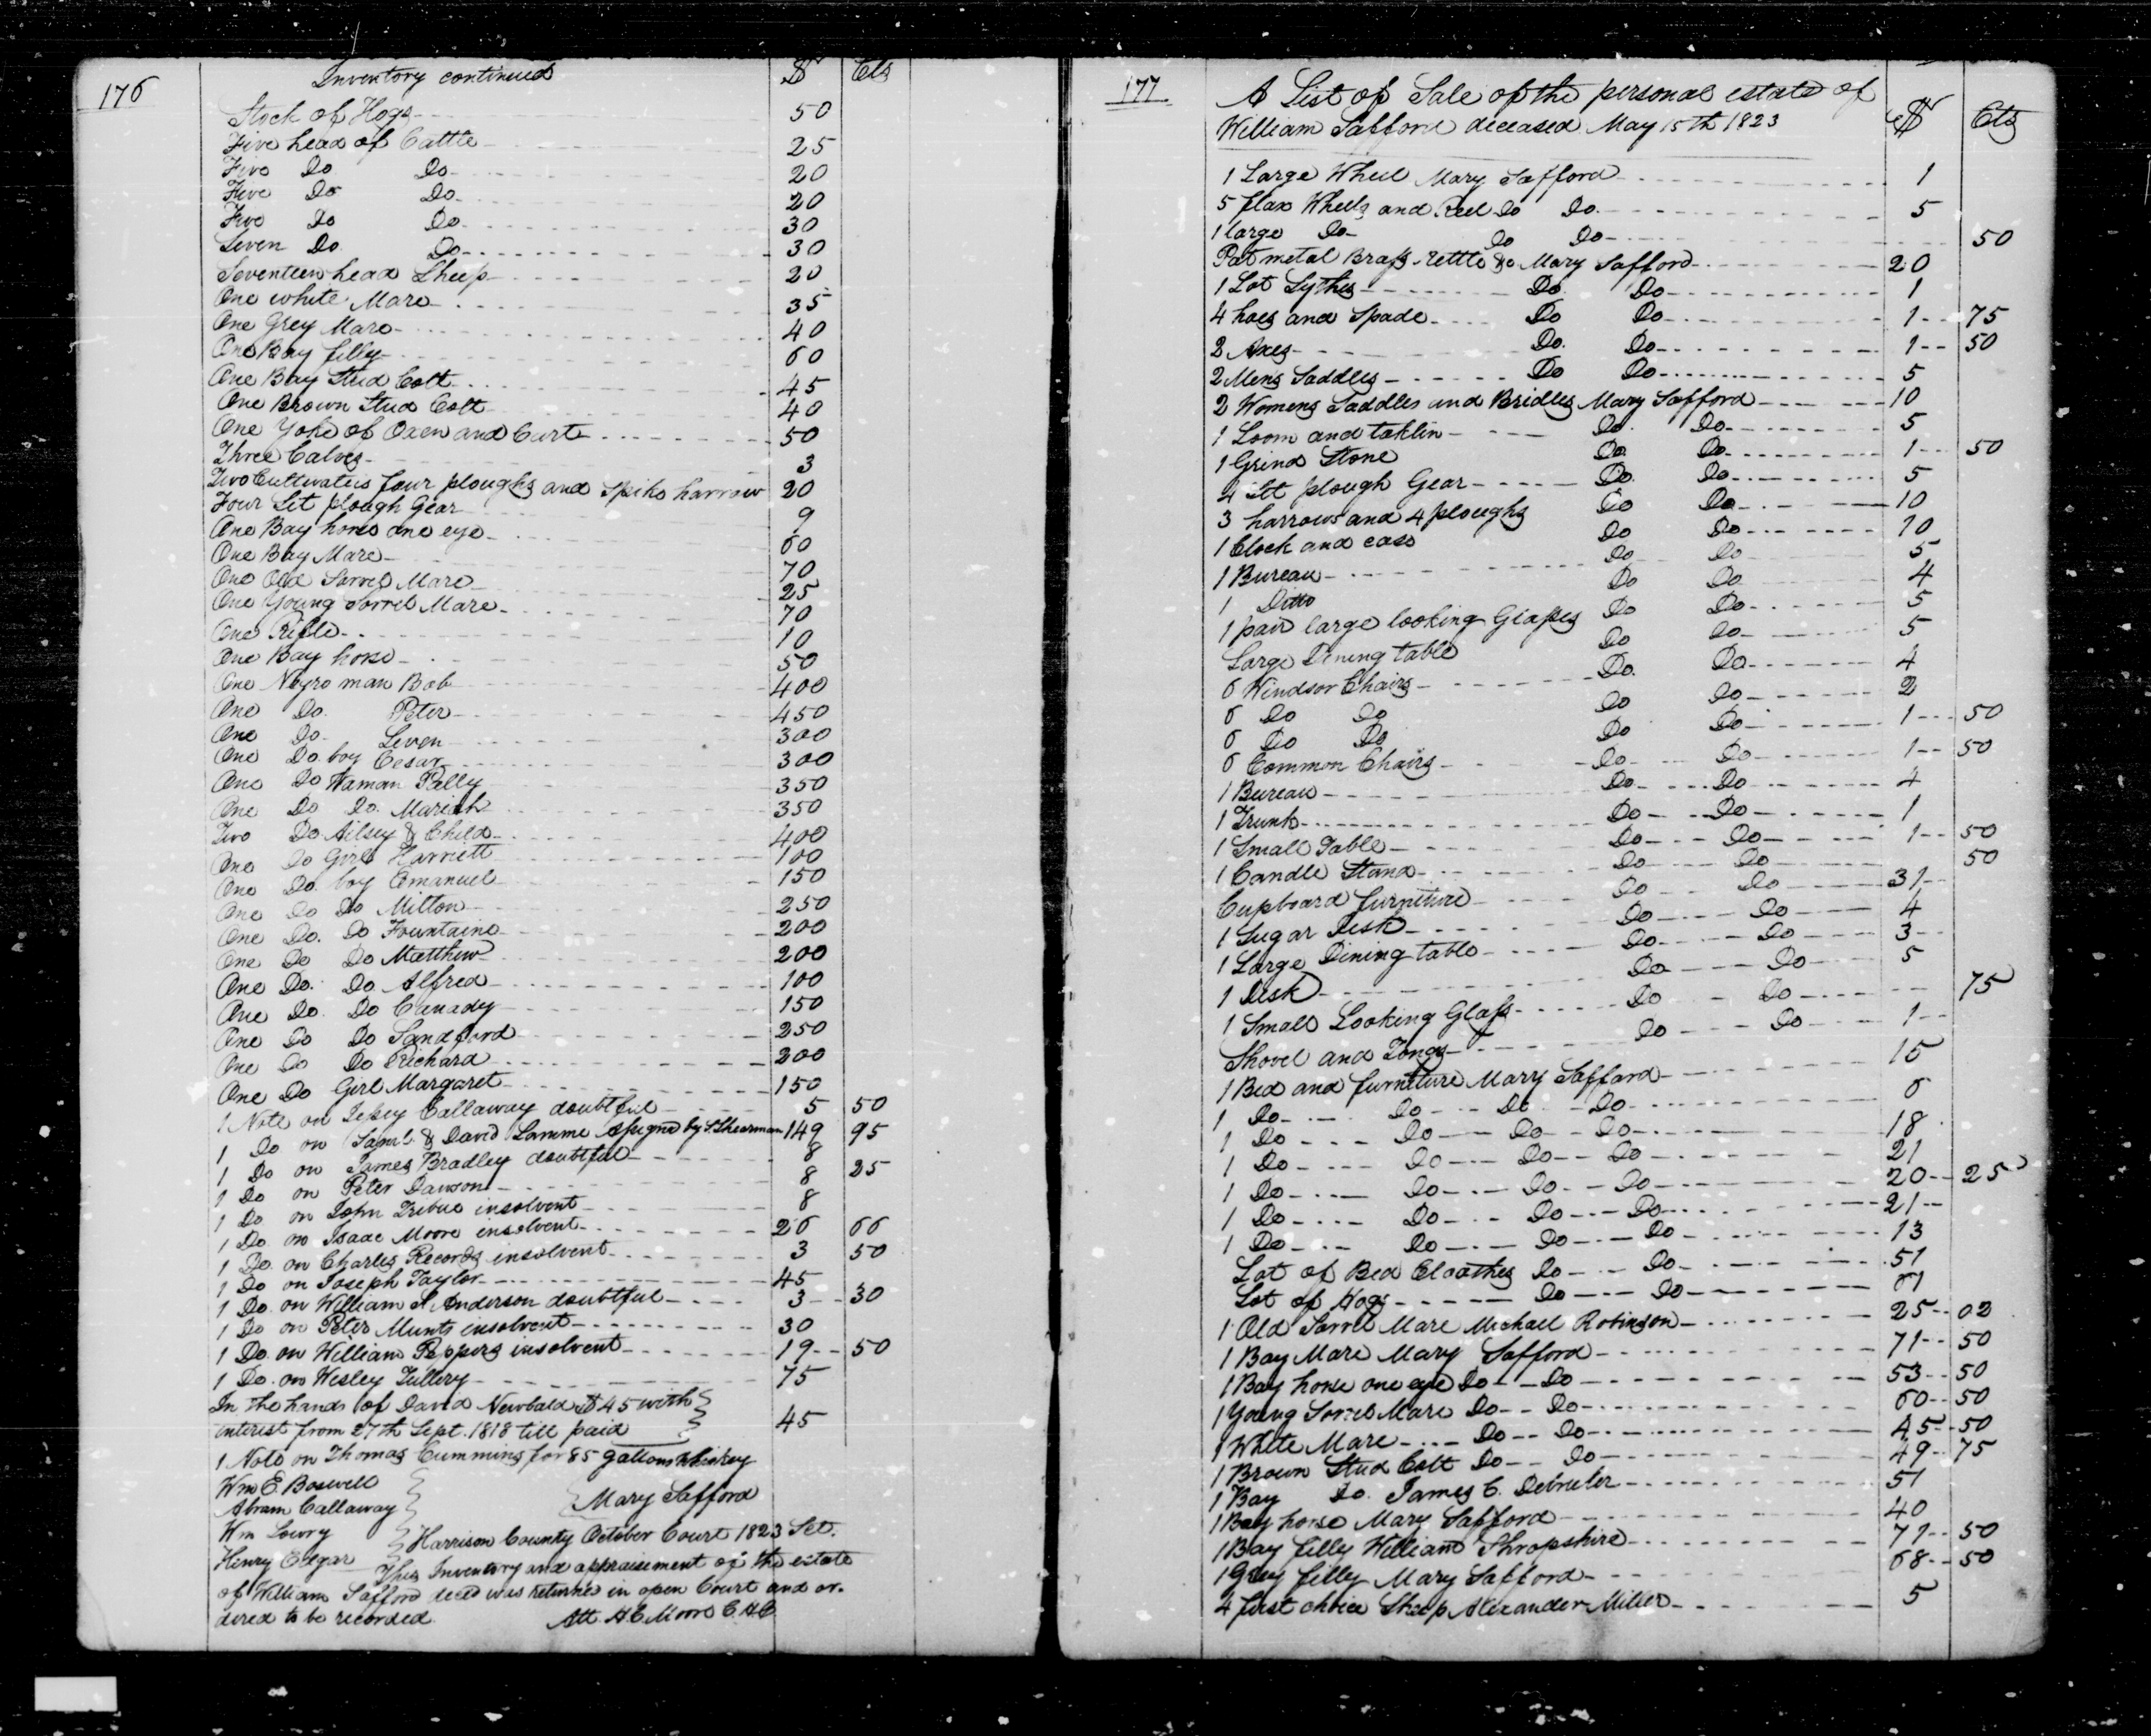 176
Inventory continued $ Cts
Stock of Hogs 50
Five head of Cattle 25
Five Do Do 20
Five Do Do 20
Five Do Do 30
Seven Do Do 30
Seventeen head Sheep 20
One white Mare 35
One Grey Mare 40
One Bay filly 60
One Bay Stud Colt 45
One Brown Stud Colt 40
One Yoke of Oxen and Cart 50
Three Calves 3
Two Cultivators four ploughs and Spike harrow 20
Four Set plough Gear 9
One Bay horse one eye 60
One Bay Mare 70
One Old Sorrel Mare 25
One Young Sorrel Mare 70
One Rifle 10
One Bay horse 50
One Negro man Bob 400
One Do. Peter 450
One Do. Seven 300
One Do boy Cesar 300
One Do Waman Pally 350
One Do Do. Mariah 350
Two Do Ailsey & Child 400
One Do Girl Harriett 100
One Do boy Emanuel 150
One Do Do Milton 250
One Do. Do Fountaine 200
One Do Do Matthew 200
One Do. Do Alfred 100
One Do. Do Canady 150
One Do Do Sandford 250
One Do Do Richard 200
One Do Girl Margaret 150
1 Note on Callaway doubtful 5 50
1 Do on Saml. & David Lamme Assignd by S. Shearman 149 95
1 Do on James Bradley doubtful 8
1 Do on Peter Dawson 8 25
1 Do on John Tribue insolvent 8
1 Do. on Isaac Moore insolvent 26 66
1 Do. on Charles Records insolvent 3 50
1 Do on Joseph Taylor 45
1 Do. on William S Anderson doubtful 3 30
1 Do on Peter Munts insolvent 30
1 Do. on William Peppers insolvent 19 50
1 Do. on Wesley Tullery 75
In the hands of David Newbald $45 with
interest from 27th Sept. 1818 till paid 45
1 Note on Thomas Cummins for 85 gallons Whiskey
Wm E. Boswell
Abram Callaway Mary Safford
Wm Lowry Harrison County October Court 1823 Sct.
Henry Edgar This Inventory and appraisement of the estate
of William Safford decd was returned in open Court and or-
dered to be recorded. Att H.C. Moore C.H.C
177
A List of Sale of the personal estate of
William Safford deceased May 15th 1823 $ Cts
1 Large Wheel Mary Safford 1
5 flax Wheels and Reel Do Do. 5
1 large Do Do Do 50
Pot metal Brass kettle &c Mary Safford 20
1 Lot Sythes Do. Do 1
4 hoes and Spade Do Do 1 75
2 Axes Do. Do 1 50
2 Mens Saddles Do Do 5
2 Womens Saddles and Bridles Mary Safford 10
1 Loom and taklin Do. Do 5
1 Grind Stone Do. Do 1 50
4 Set plough Gear Do. Do 5
3 harrows and 4 ploughs Do Do 10
1 Clock and case Do Do 10
1 Bureau Do Do 5
1 Ditto Do Do 4
1 pair large looking Glasses Do Do 5
Large Dining table Do Do 5
6 Windsor Chairs Do. Do 4
6 Do Do Do Do 2
6 Do Do Do Do 1 50
6 Common Chairs Do Do 1 50
1 Bureau Do Do 4
1 Trunk Do Do 1
1 Small Table Do Do 1 50
1 Candle Stand Do Do 50
Cupboard furniture Do Do 31
1 Sugar Desk Do Do 4
1 Large Dining table Do Do 3
1 Desk Do Do 5
1 Small Looking Glass Do Do 75
Shovel and Tongs Do Do 1
1 Bed and furniture Mary Safford 15
1 Do Do Do Do 6
1 Do Do Do Do 18
1 Do Do Do Do 21
1 Do Do Do Do 20 25
1 Do Do Do Do 21
1 Do Do Do Do 13
Lot of Bed Cloathes Do Do 51
Lot of Hogs Do Do 61
1 Old Sorrel Mare Michael Robinson 25 02
1 Bay Mare Mary Safford 71 50
1 Bay horse one eye Do Do 53 50
1 Young Sorrel Mare Do Do 60 50
1 White Mare Do Do 45 50
1 Brown Stud Colt Do Do 49 75
1 Bay Do. James C. 51
1 Bay horse Mary Safford 40
1 Bay filly William Shropshire 71 50
1 Grey filly Mary Safford 68 50
4 first choice Sheep Alexander Miller 5